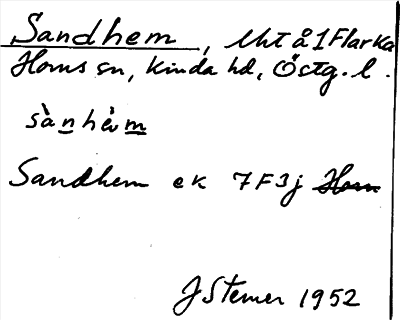 Sandhem, Uht å 1 Flarka
Horns sn, Kinda hd, Östg. l.
sànhèm
Sandhem ek 7F3j Horn
J Stemer 1952